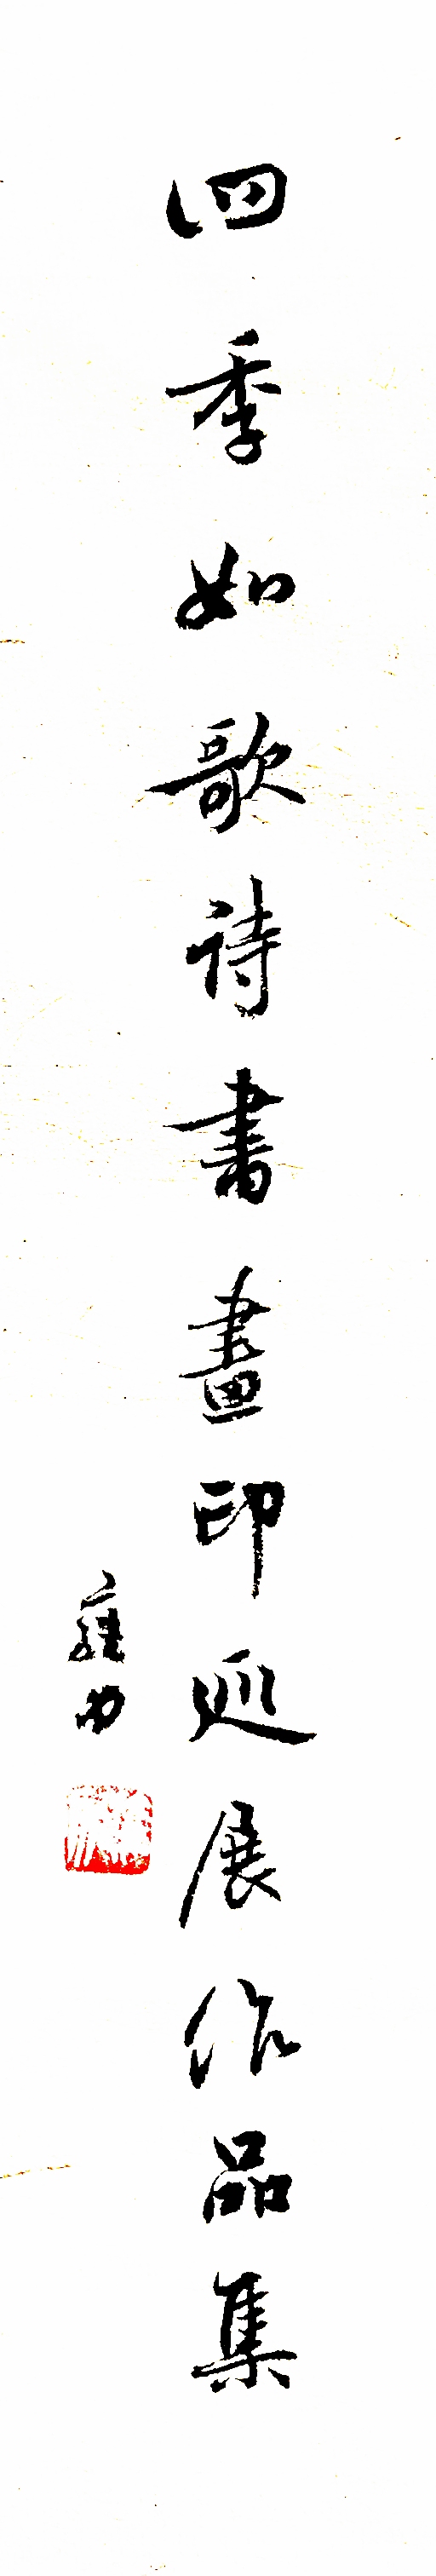 四季如歌诗書畫印巡展作品集